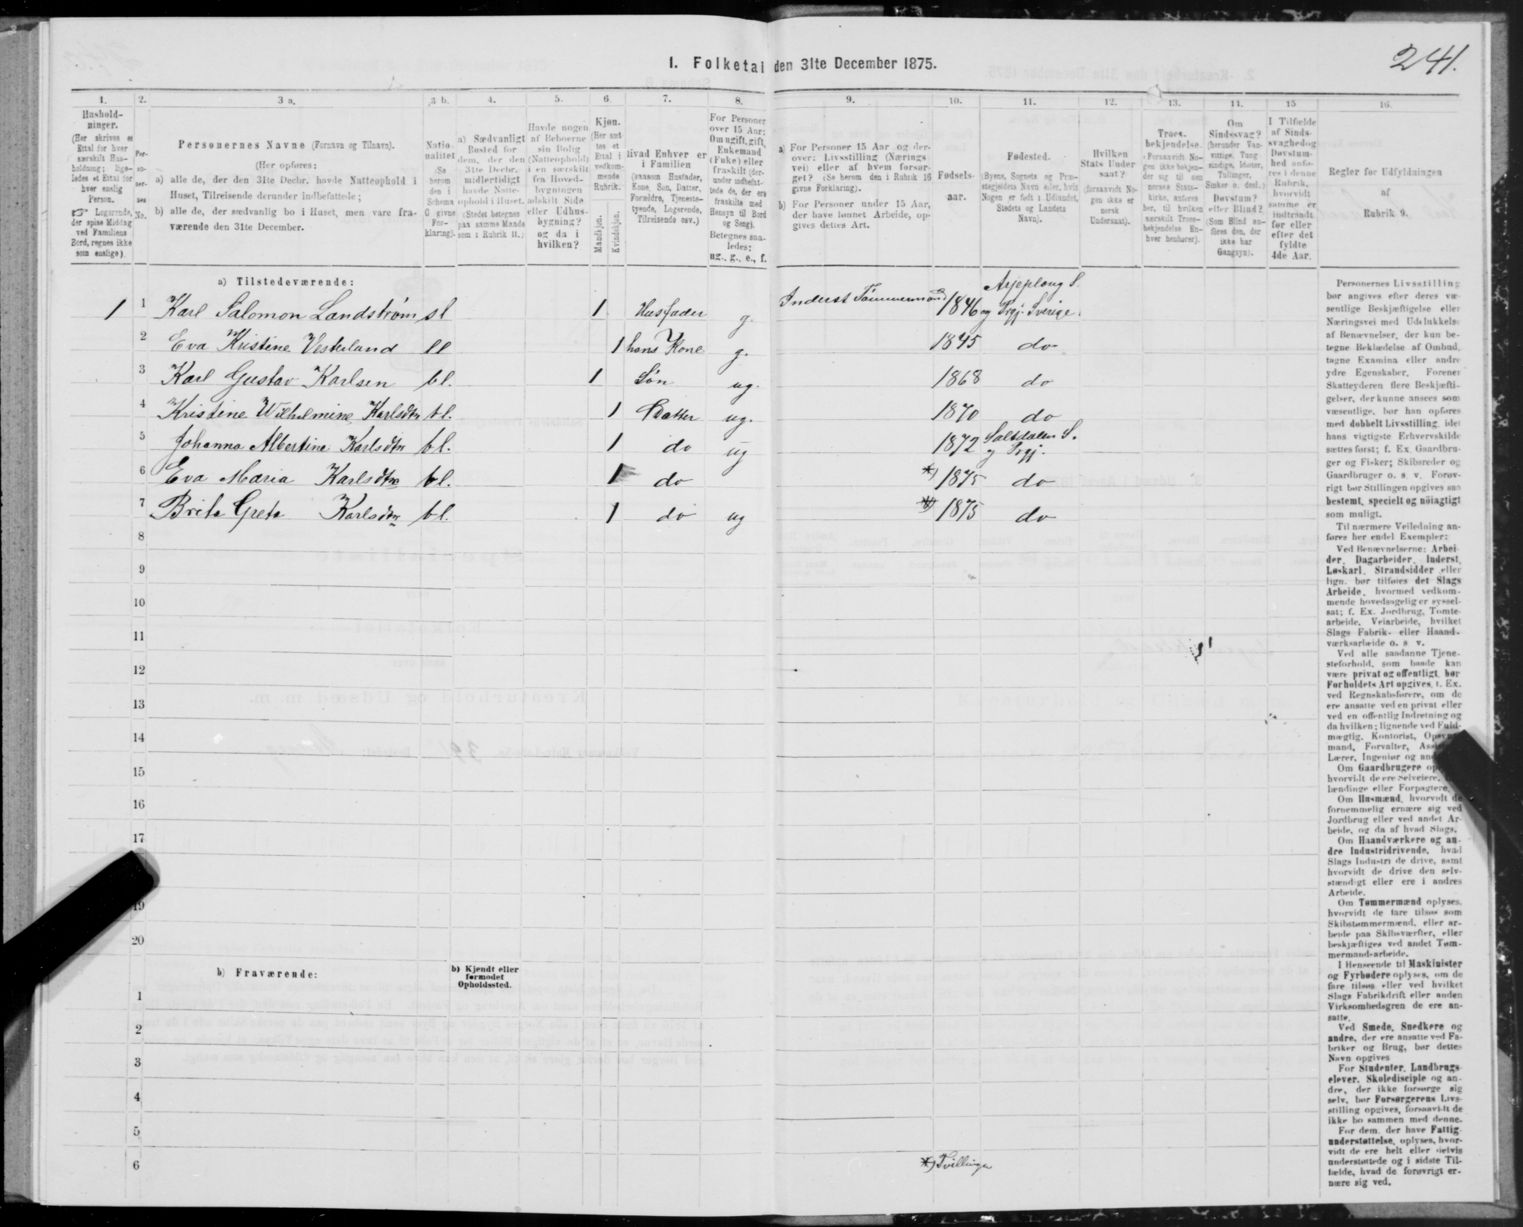 241.
1. Folketal den 31te December 1875.
1. 2. 3 a. 3 b. 4. 5. 6. 7. 8. 9. 10. 11. 12. 13. 14. 15 16.
Hushold-
ninger.
(Her skrives et
Ettal for hver
særskilt Hus-
holdning; lige-
ledes et Ettal for
hver enslig
Person.
☞ Logerende,
der spise Middag
ved Familiens
Bord, regnes ikke
som enslige).
Personernes Navne (Fornavn og Tilnavn).
(Her opføres:
a) alle de, der den 31te Decbr. havde Natteophold i
Huset, Tilreisende derunder indbefattede;
b) alle de, der sædvanlig bo i Huset, men vare fra-
værende den 31te December.
Natio-
nalitet
(Se
herom
den i
Schema
0 givne
For-
klaring).
a) Sædvanligt
Bosted for
dem, der den
31te Decbr.
midlertidigt
havde Natte-
ophold i Huset.
(Stedet betegnes
paa samme Maade
som i Rubrik 11.)
Havde nogen
af Beboerne
sin Bolig
(Natteophold)
i en særskilt
fra Hoved-
bygningen
adskilt Side-
eller Udhus-
bygning?
og da i
hvilken?
Kjøn.
(Her sæt-
tes et
Ettal i
vedkom-
mende
Rubrik.
Mandskjøn.
Kvindekjøn.
Hvad Enhver er
i Familien
(saasom Husfader,
Kone, Søn, Datter,
Forældre, Tjeneste-
tyende, Logerende,
Tilreisende osv.)
For Personer
over 15 Aar:
Om ugift, gift,
Enkemand
(Enke) eller
fraskilt (der-
under indbefat-
tede de, der ere
fraskilte med
Hensyn til Bord
og Seng).
Betegnes saa-
ledes:
ug., g., e., f.
a) For Personer 15 Aar og der-
over: Livsstilling (Nærings-
vei) eller af hvem forsør-
get? (Se herom den i Rubrik 16
givne Forklaring).
b) For Personer under 15 Aar,
der have lønnet Arbeide, op-
gives dettes Art.
Fødsels-
aar.
Fødested.
(Byens, Sognets og Præ-
stegjeldets Navn eller, hvis
Nogen er født i Udlandet,
Stedets og Landets
Navn).
Hvilken
Stats Under-
saat?
(forsaavidt No-
gen ikke er
norsk
Undersaat).
Troes-
bekjendelse.
(Forsaavidt No-
gen ikke bekjen-
der sig til den
norske Stats-
kirke, anføres
her, til hvilken
særskilt Troes-
bekjendelse En-
hver henhører).
Om
Sindssvag?
(herunder Van-
vittige, Tung-
sindige, Idioter,
Tullinger,
Sinker o. desl.)
Døvstum?
eller Blind?
(Som Blind an-
føres den, der
ikke har
Gangsyn).
I Tilfælde
af Sinds-
svaghed og
Døvstum-
hed anfø-
res i denne
Rubrik,
hvorvidt
samme er
indtraadt
før eller
efter det
fyldte
4de Aar.
Regler for Udfyldningen
af
Rubrik 9.
a) Tilstedeværende:
1 1 Karl Salomon Landstrøm sl 1 Husfader g. Inderst Tømmermand 1846 Arjeploug S. og Prgj. Sverige.
2 Eva Kristine Vesterland ll 1 hans Kone g. 1845 do
3 Karl Gustav Karlsen bl. 1 Søn ug. 1868 do
4 Kristine Wilhelmine Karlsdtr bl. 1 Datter ug. 1870 do
5 Johanna Albertina Karlsdtr bl. 1 do ug 1872 Saltdalen S. og Prgj.
6 Eva Maria Karlsdtr bl. 1 do *) 1875 do
7 Brita Greta Karlsdtr bl. 1 do ug *) 1875 do
8
9
10
11
12
13
14
15
16
17
19
20
b) Fraværende:
b) Kjendt eller
formodet
Opholdssted.
1
2
3
4
5
6
*) Tvillinger
Personernes Livsstilling
bør angives efter deres væ-
sentlige Beskjæftigelse eller
Næringsvei med Udelukkelse
af Benævnelser, der kun be-
tegne Beklædelse af Ombud,
tagne Examina eller andre
ydre Egenskaber. Forener
Skatteyderen flere Beskjæfti-
gelser, der kunne ansees som
væsentlige, bør han opføres
med dobbelt Livsstilling, idet
hans vigtigste Erhvervskilde
sættes først; f. Ex. Gaardbru-
ger og Fisker; Skibsreder og
Gaardbruger o. s. v. Forøv-
rigt bør Stillingen opgives saa
bestemt, specielt og nøiagtigt
som muligt.
Til nærmere Veiledning an-
føres her endel Exempler:
Ved Benævnelserne: Arbei-
der, Dagarbeider, Inderst,
Løskarl, Strandsidder eller
lign. bør tilføies det Slags
Arbeide, hvormed vedkom-
mende hovedsagelig er syssel-
sat; f. Ex. Jordbrug, Tomte-
arbeide, Veiarbeide, hvilket
Slags Fabrik- eller Haand-
værksarbeide o. s. v.
Ved alle saadanne Tjene-
steforhold, som baade kan
være privat og offentligt, bør
Forholdets Art opgives, t. Ex.
ved Regnskabsførere, om de
ere ansatte ved en privat eller
ved en offentlig Indretning og
da hvilken; lignende ved Fuld-
mægtig, Kontorist,
mand, Forvalter,
Lærer, Ingeniør og
Om Gaardbrugere
hvorvidt de ere Selveiere,
lændinge eller Forpagtere.
Om Husmænd, hvorvidt de
fornemmelig ernære sig ved
Jordbrug eller ved andet Ar-
beide, og da af hvad Slags.
Om Haandværkere og an-
dre Industridrivende, hvad
Slags Industri de drive, samt
hvorvidt de drive den selv-
stændigt eller ere i andres
Arbeide.
Om Tømmermænd oplyses,
hvorvidt de fare tilsøs som
Skibstømmermænd, eller ar-
beide paa Skibsværfter, eller
beskjæftiges ved andet Tøm-
mermandsarbeide.
I Henseende til Maskinister
og Fyrbødere oplyses, om de
fare tilsøs eller ved hvilket
Slags Fabrikdrift eller anden
Virksomhedsgren de ere an-
satte.
Ved Smede, Snedkere og
andre, der ere ansatte ved Fa-
briker og Brug, bør dettes
Navn opgives
For Studenter, Landbrugs-
elever, Skoledisciple og an-
dre, der ikke forsørge sig
selv, bør Forsørgerens Livs-
stilling opgives, forsaavidt de
ikke bo sammen med denne.
For dem, der have Fattig-
understøttelse, oplyses, hvor-
vidt de ere helt eller delvis
understøttede og i sidste Til-
fælde, hvad de forøvrigt er-
nære sig ved.